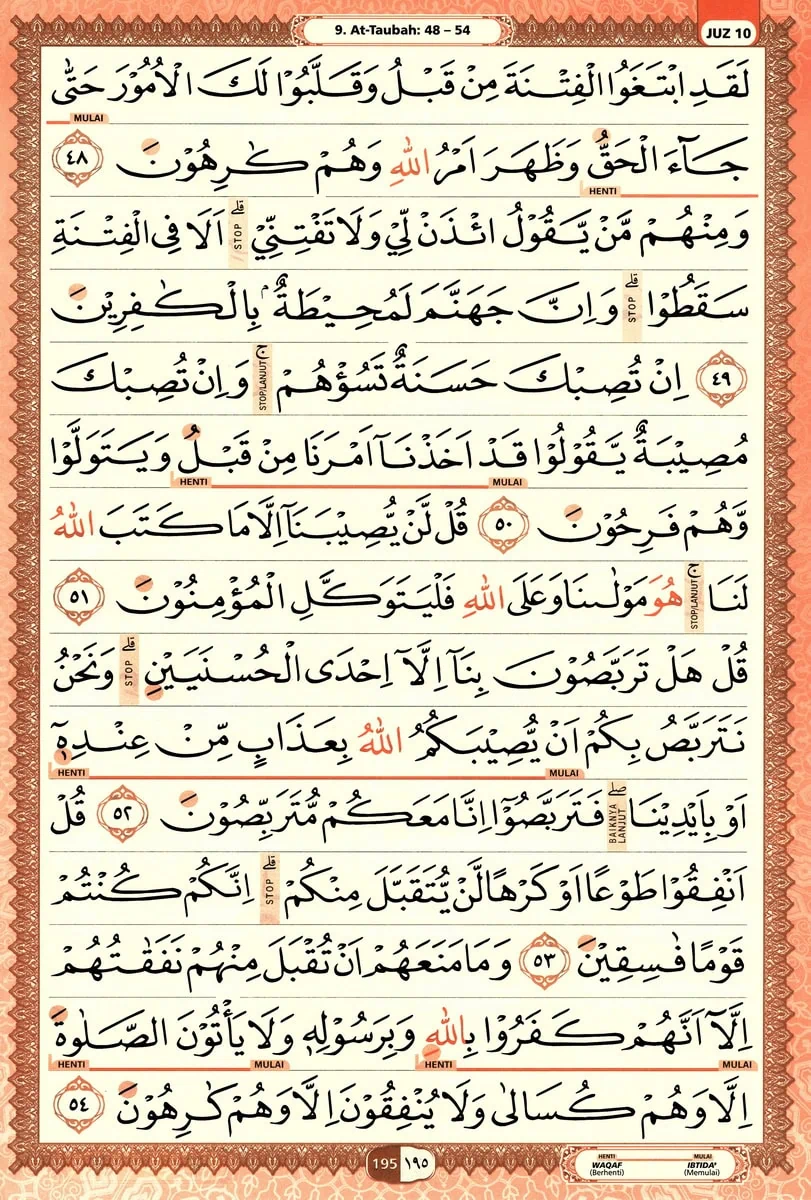 9. At-Taubah: 48 – 54
JUZ 10
لَقَدِ ابْتَغَوُا الْفِتْنَةَ مِنْ قَبْلُ وَقَلَّبُوْا لَكَ الْاُمُوْرَ حَتّٰى
MULAI
جَاۤءَ الْحَقُّ وَظَهَرَ اَمْرُ اللّٰهِ وَهُمْ كٰرِهُوْنَ ٤٨
HENTI
وَمِنْهُمْ مَّنْ يَّقُوْلُ ائْذَنْ لِّيْ وَلَا تَفْتِنِّيْۗ STOP اَلَا فِى الْفِتْنَةِ
سَقَطُوْاۗ STOP وَاِنَّ جَهَنَّمَ لَمُحِيْطَةٌ ۢ بِالْكٰفِرِيْنَ
٤٩ اِنْ تُصِبْكَ حَسَنَةٌ تَسُؤْهُمْۚ STOP/LANJUT وَاِنْ تُصِبْكَ
مُصِيْبَةٌ يَّقُوْلُوْا قَدْ اَخَذْنَآ اَمْرَنَا مِنْ قَبْلُ وَيَتَوَلَّوْا
MULAI HENTI
وَّهُمْ فَرِحُوْنَ ٥٠ قُلْ لَّنْ يُّصِيْبَنَآ اِلَّا مَا كَتَبَ اللّٰهُ
لَنَاۚ STOP/LANJUT هُوَ مَوْلٰىنَا وَعَلَى اللّٰهِ فَلْيَتَوَكَّلِ الْمُؤْمِنُوْنَ ٥١
قُلْ هَلْ تَرَبَّصُوْنَ بِنَآ اِلَّآ اِحْدَى الْحُسْنَيَيْنِۗ STOP وَنَحْنُ
نَتَرَبَّصُ بِكُمْ اَنْ يُّصِيْبَكُمُ اللّٰهُ بِعَذَابٍ مِّنْ عِنْدِهٖٓ
MULAI HENTI
اَوْ بِاَيْدِيْنَاۖ BAIKNYA LANJUT فَتَرَبَّصُوْٓا اِنَّا مَعَكُمْ مُّتَرَبِّصُوْنَ ٥٢ قُلْ
اَنْفِقُوْا طَوْعًا اَوْ كَرْهًا لَّنْ يُّتَقَبَّلَ مِنْكُمْۗ STOP اِنَّكُمْ كُنْتُمْ
قَوْمًا فٰسِقِيْنَ ٥٣ وَمَا مَنَعَهُمْ اَنْ تُقْبَلَ مِنْهُمْ نَفَقٰتُهُمْ
اِلَّآ اَنَّهُمْ كَفَرُوْا بِاللّٰهِ وَبِرَسُوْلِهٖ وَلَا يَأْتُوْنَ الصَّلٰوةَ
MULAI HENTI MULAI HENTI
اِلَّا وَهُمْ كُسَالٰى وَلَا يُنْفِقُوْنَ اِلَّا وَهُمْ كٰرِهُوْنَ ٥٤
195 ١٩٥
HENTI MULAI
WAQAF IBTIDA'
(Berhenti) (Memulai)